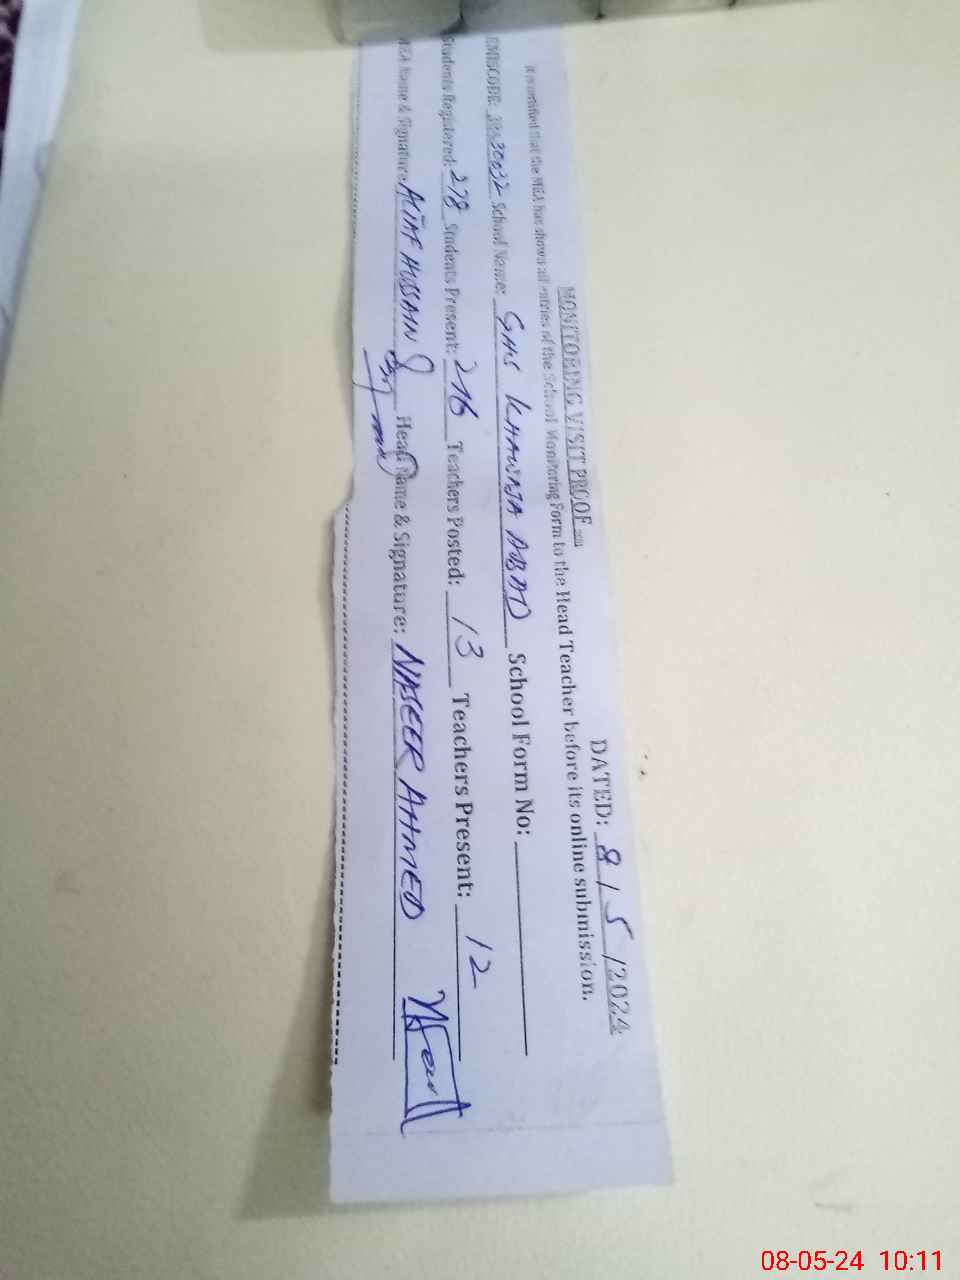 MONITORING VISIT PROOF
DATED: 8/5/2024
It is certified that the MEA has shown all entries of the School Monitoring Form to the Head Teacher before its online submission.
EMISCODE: School Name: GHS KHAWAJA ABAD School Form No:
Students Registered: 278 Students Present: 216 Teachers Posted: 13 Teachers Present: 12
MEA Name & Signature: ALTAF HUSSAIN Head Name & Signature: NASEER AHMED
08-05-24 10:11